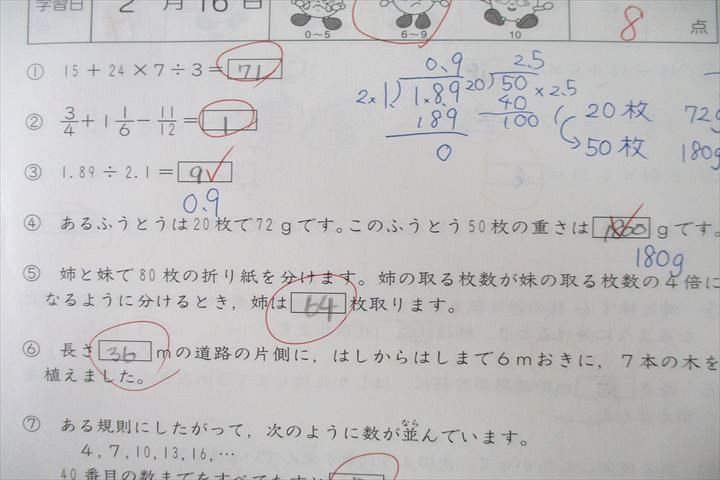 学習日 2 月 16 日 0～5 6～9 10 8 点
① 15+24×7÷3= 71
② 3/4+1 1/6-11/12= 1
③ 1.89÷2.1= 9
0.9
0.9
2.1)1.89
189
0
2.5
20)50 ×2.5
40
100
20枚 72g
50枚 180g
④ あるふうとうは20枚で72gです。このふうとう50枚の重さは 1800 gです。
180g
⑤ 姉と妹で80枚の折り紙を分けます。姉の取る枚数が妹の取る枚数の4倍に
なるように分けるとき,姉は 64 枚取ります。
⑥ 長さ 36 mの道路の片側に,はしからはしまで6mおきに,7本の木を
植えました。
⑦ ある規則にしたがって,次のように数が並んでいます。
なら
4,7,10,13,16,…
40番目の数までをすべてたすと